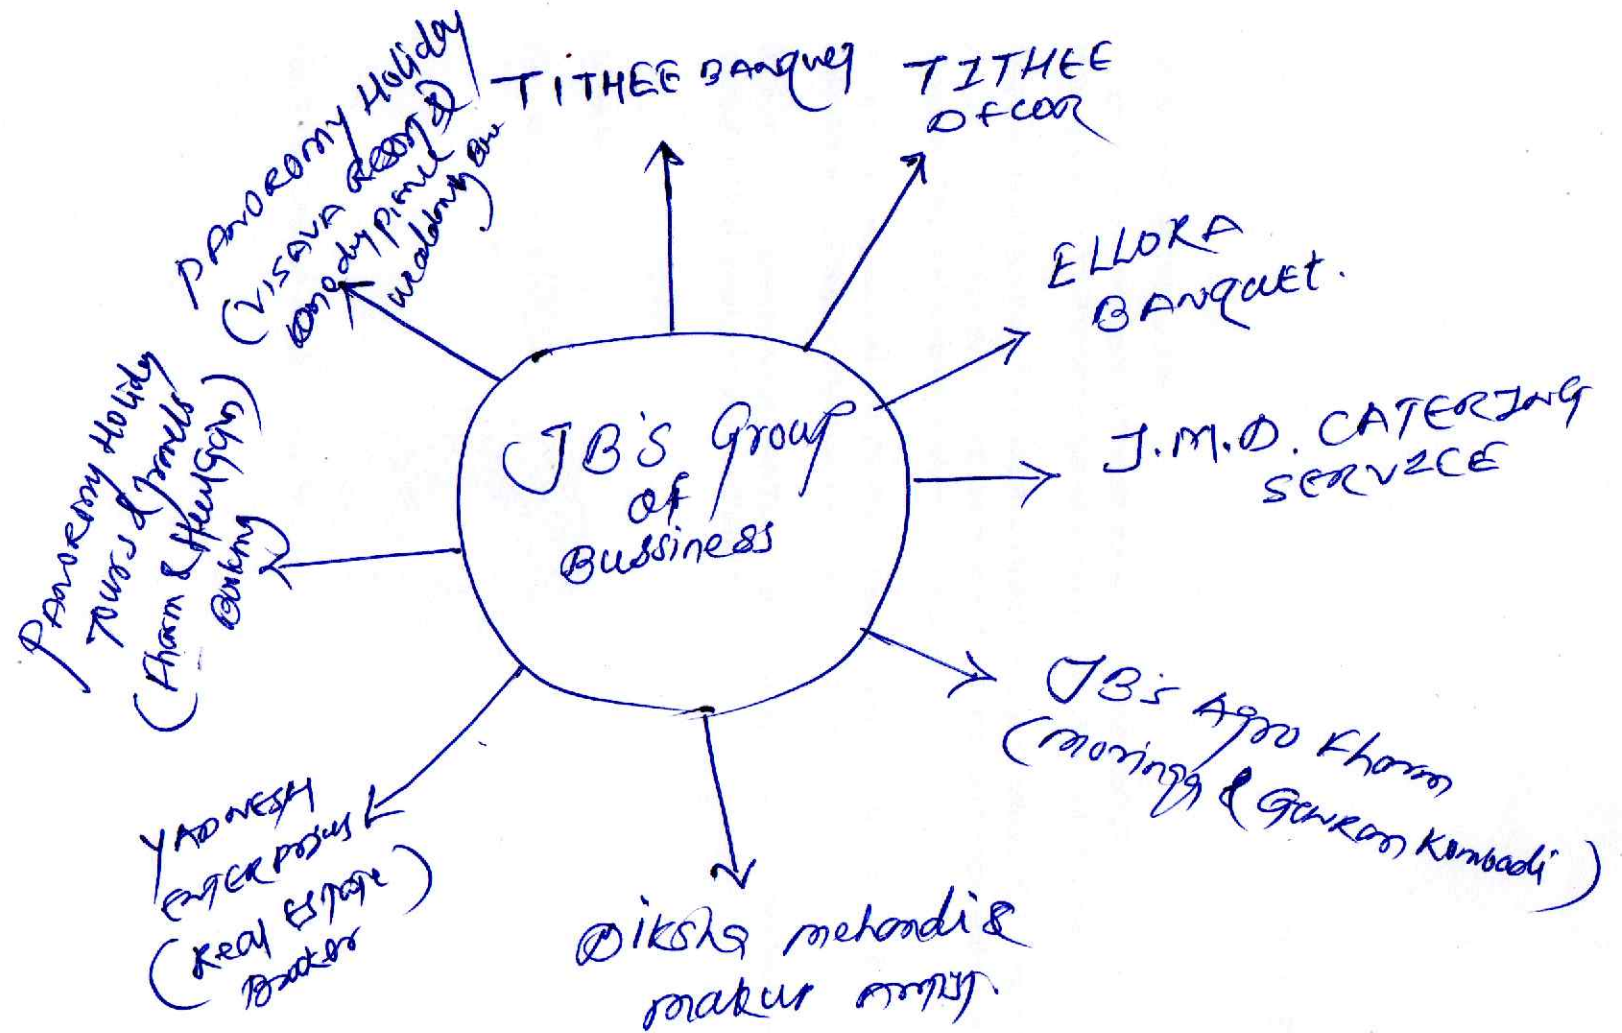 JB's Group
of
Bussiness
TITHEE BANquet
TITHEE
DECOR
ELLORA
BANQUET.
J.M.D. CATERING
SERVICE
JB's Agro Fharm
(moringa & Gavran Kombadi)
Diksha mehandi &
makup Artist.
YADNESH
ENTERPRISES
(Real Estate
Broker)
PANOROMY Holiday
TOURS & Travels
(Fharm &
Booking)
PANOROMY Holiday
(VISAVA RESORT &
wedding